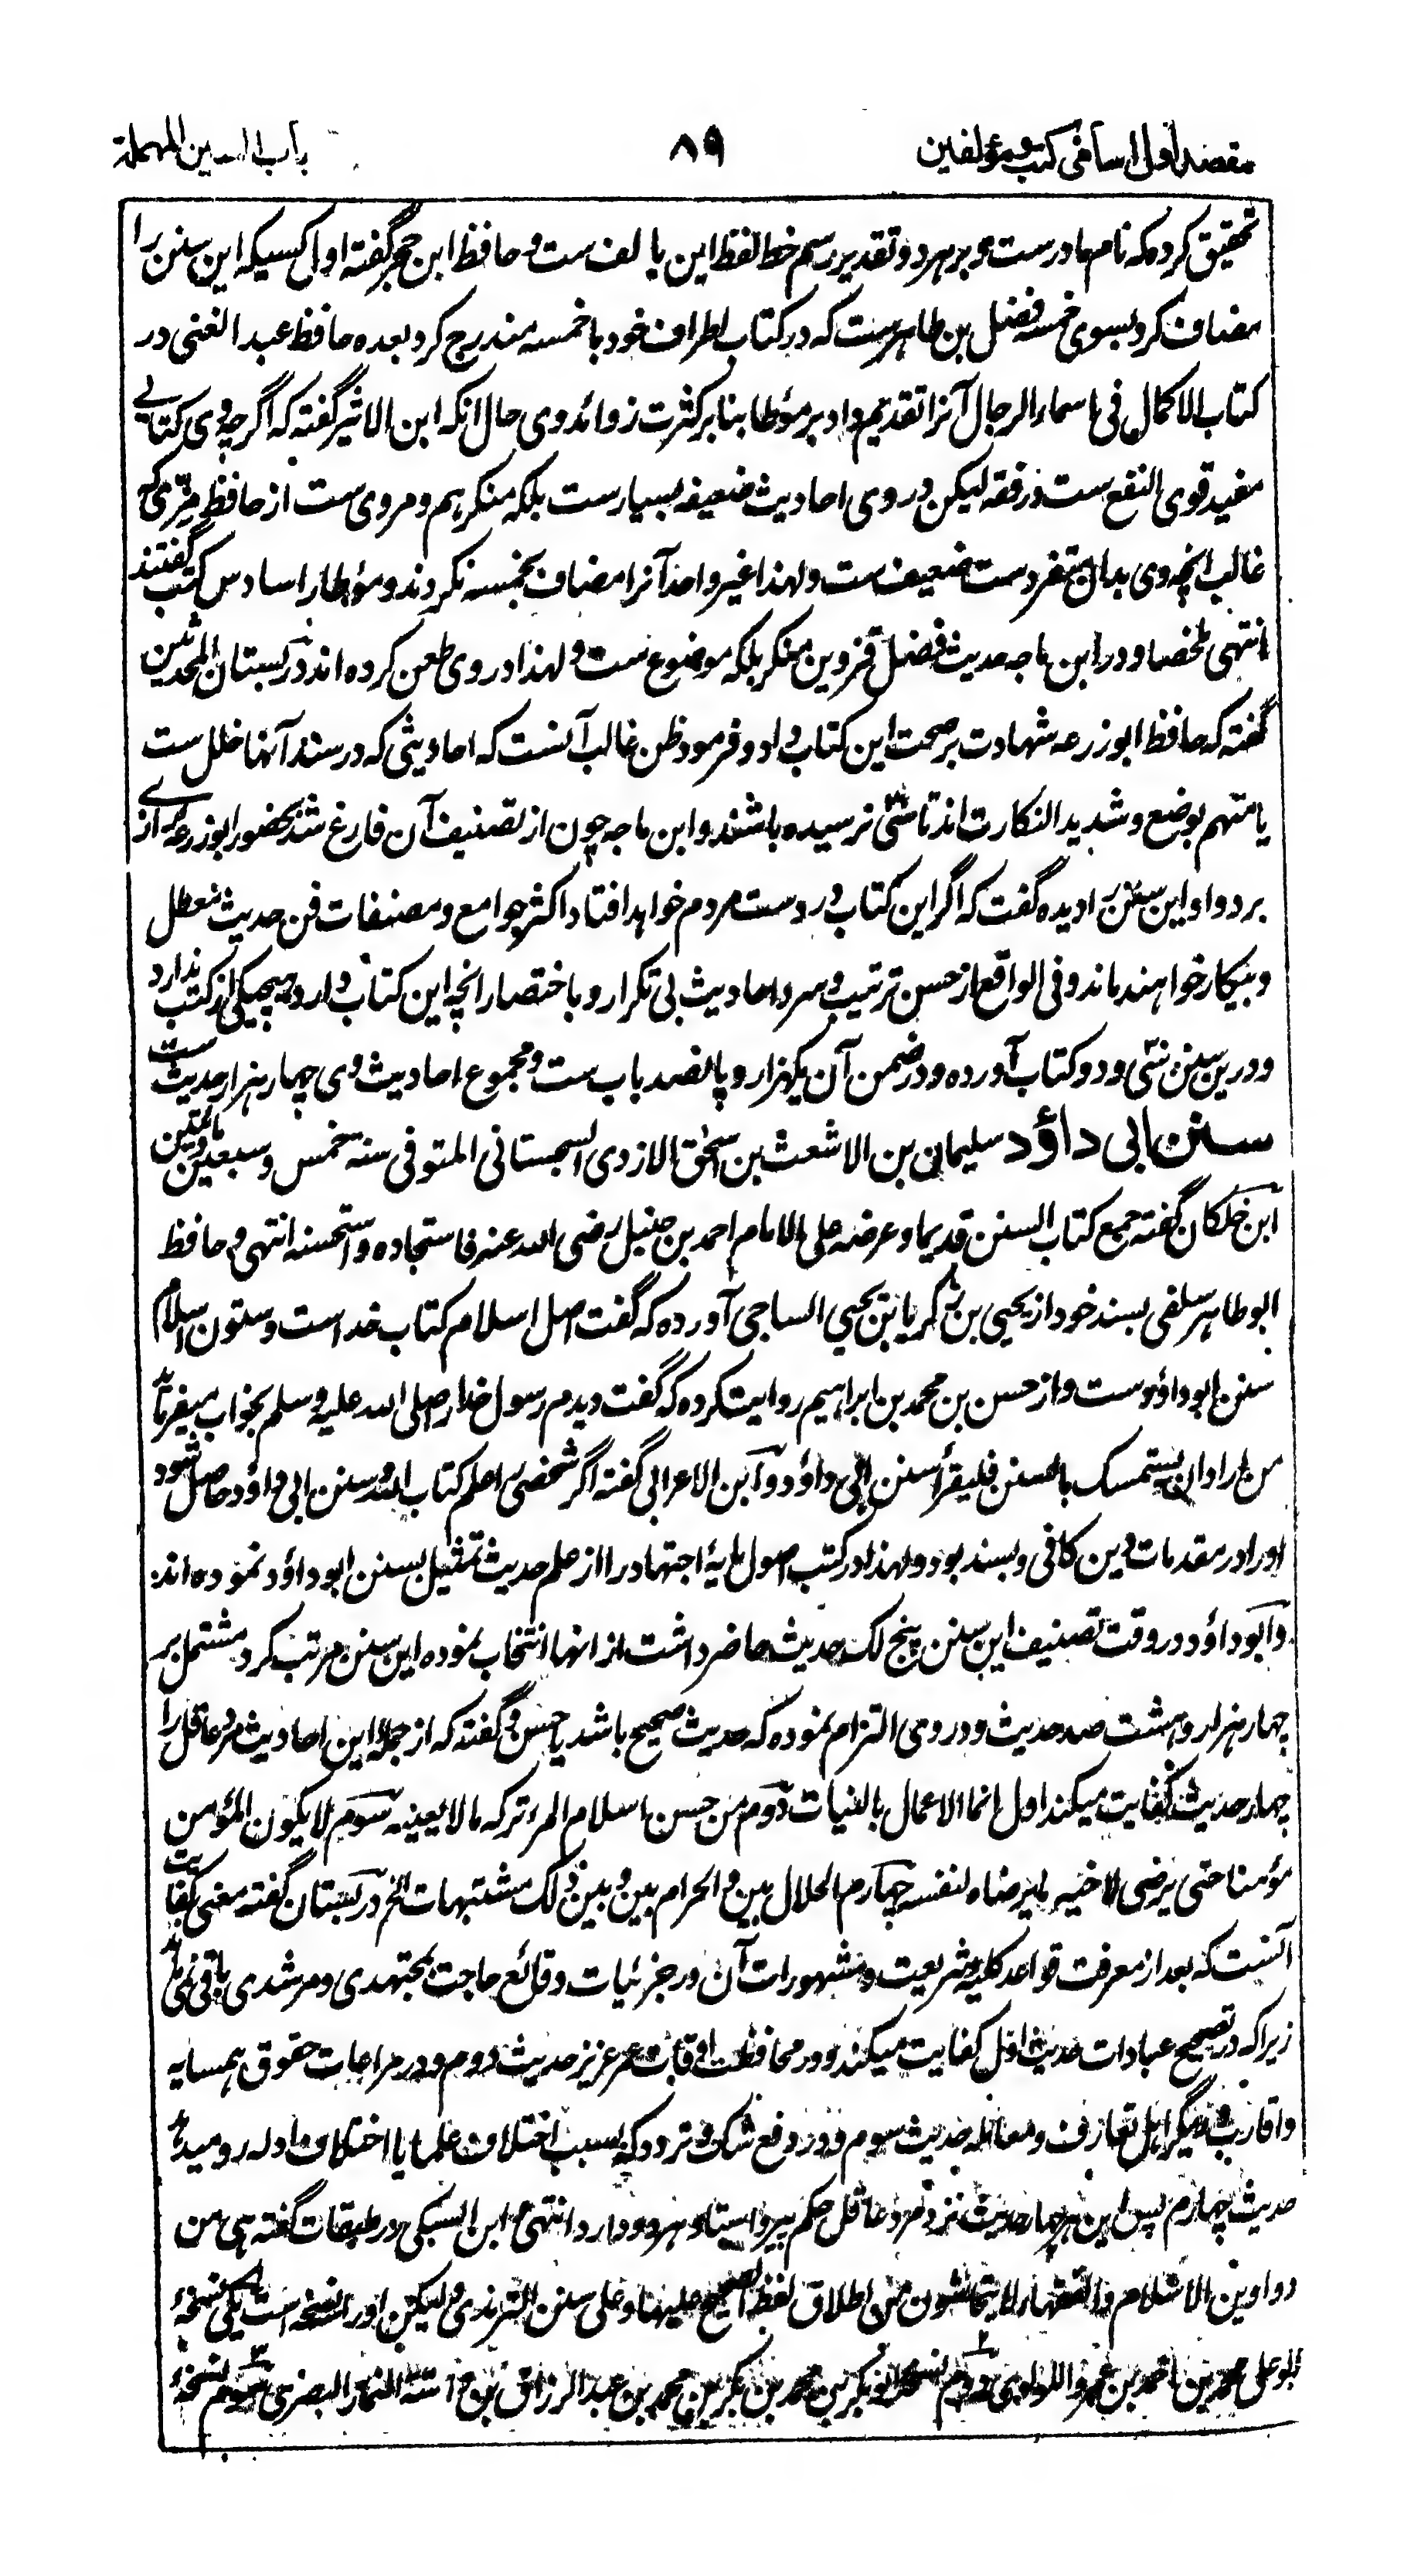 مقصد اول اسامی کتب و مؤلفین
۸۹
باب السین المهملة
تحقیق کرده که نام مادرست و بر هر دو تقدیر رسم خط لفظ این با الف ست و حافظ ابن حجر گفته اول کسیکه این سنن را
مضاف کرد بسوی خمسه فضل بن طاهرست که در کتاب اطراف خود با خمسه مندرج کرد بعده حافظ عبد الغنی در
کتاب الاکمال فی اسماء الرجال آنرا تقدیم داد بر مؤطا بنا بر کثرت زوائد وی حال آنکه ابن الاثیر گفته که اگرچه وی کتابے
مفید قوی النفع ست در فقه لیکن در وی احادیث ضعیفه بسیارست بلکه منکر هم و مروی ست از حافظ مزی که
غالب انچه وی بدان متفردست ضعیف ست و لهذا غیر واحد آنرا مضاف بخمسه نکردند و مؤطا را سادس کتب گفتند
انتهی ملخصا و در ابن ماجه حدیث فضل قزوین منکر بلکه موضوع ست و لهذا در وی طعن کرده اند در بستان المحدثین
گفته که حافظ ابو زرعه شهادت بر صحت این کتاب داد و فرمود ظن غالب آنست که احادیثی که در سند آنها خلل ست
یا متهم بوضع و شدید النکارت اند تا سی نرسیده باشند و ابن ماجه چون از تصنیف آن فارغ شد بحضور ابو زرعه رازے
برد و او این سنن را دیده گفت که اگر این کتاب در دست مردم خواهد افتاد اکثر جوامع و مصنفات فن حدیث معطل
و بیکار خواهند ماند و فی الواقع از حسن ترتیب و سرد احادیث بی تکرار و با اختصار انچه این کتاب دارد هیچ یکی از کتب ندارد
و درین سنن سی و دو کتاب آورده و در ضمن آن یکهزار و پانصد باب ست و مجموع احادیث وی چهار هزار حدیث ست
سنن ابی داؤد سلیمان بن الاشعث بن اسحق الازدی السجستانی المتوفی سنة خمس و سبعین و مائتین
ابن خلکان گفته جمع کتاب السنن قدیما و عرضه علی الامام احمد بن حنبل رضی الله عنه فاستجاده و استحسنه انتهی و حافظ
ابو طاهر سلفی بسند خود از یحیی بن زکریا بن یحیی الساجی آورده که گفت اصل اسلام کتاب خداست و ستون اسلام
سنن ابو داؤدست و از حسن بن محمد بن ابراهیم روایت کرده که گفت دیدم رسول خدا را صلی الله علیه و سلم بخواب میفرماید
من اراد ان یستمسک بالسنن فلیقرأ سنن ابی داؤد و ابن الاعرابی گفته اگر شخصی را علم کتاب الله و سنن ابی داؤد حاصل شود
او را در مقدمات دین کافی و بسند بود و لهذا در کتب اصول مایۀ اجتهاد را از علم حدیث تمثیل بسنن ابو داؤد نموده اند
و ابو داؤد در وقت تصنیف این سنن پنج لک حدیث حاضر داشت از انها انتخاب نموده این سنن مرتب کرد مشتمل بر
چهار هزار و هشت صد حدیث و در وی التزام نموده که حدیث صحیح باشد یا حسن و گفته که از جمله این احادیث مرد عاقل را
چهار حدیث کفایت میکند اول انما الاعمال بالنیات دوم من حسن اسلام المرء ترکه ما لا یعنیه سوم لا یکون المؤمن
مؤمنا حتی یرضی لاخیه ما یرضاه لنفسه چهارم الحلال بین و الحرام بین و بین ذلک مشتبهات الخ در بستان گفته معنی کفایت
آنست که بعد از معرفت قواعد کلیه شریعت و مشهورات آن در جزئیات وقائع حاجت بمجتهدی و مرشدی باقی نمی ماند
زیراکه در تصحیح عبادات حدیث اول کفایت میکند و در محافظت اوقات عمر عزیز حدیث دوم و در مراعات حقوق همسایه
و اقارب و دیگر اهل تعارف و معامله حدیث سوم و در دفع شک و تردد که بسبب اختلاف علما یا اختلاف ادله رو میدهد
حدیث چهارم پس این هر چهار حدیث نزد مرد عاقل حکم پیر و استاد هر دو دارد انتهی ابن السبکی در طبقات گفته هی من
دواوین الاسلام و الفقهاء لا یتحاشون من اطلاق لفظ الصحیح علیها و علی سنن الترمذی و لیکن او را نسخه است یکی نسخۀ
ابو علی محمد بن احمد بن عمرو اللولوی دوم نسخۀ ابو بکر بن محمد بن بکر بن محمد بن عبد الرزاق بن داسة التمار البصری سوم نسخۀ